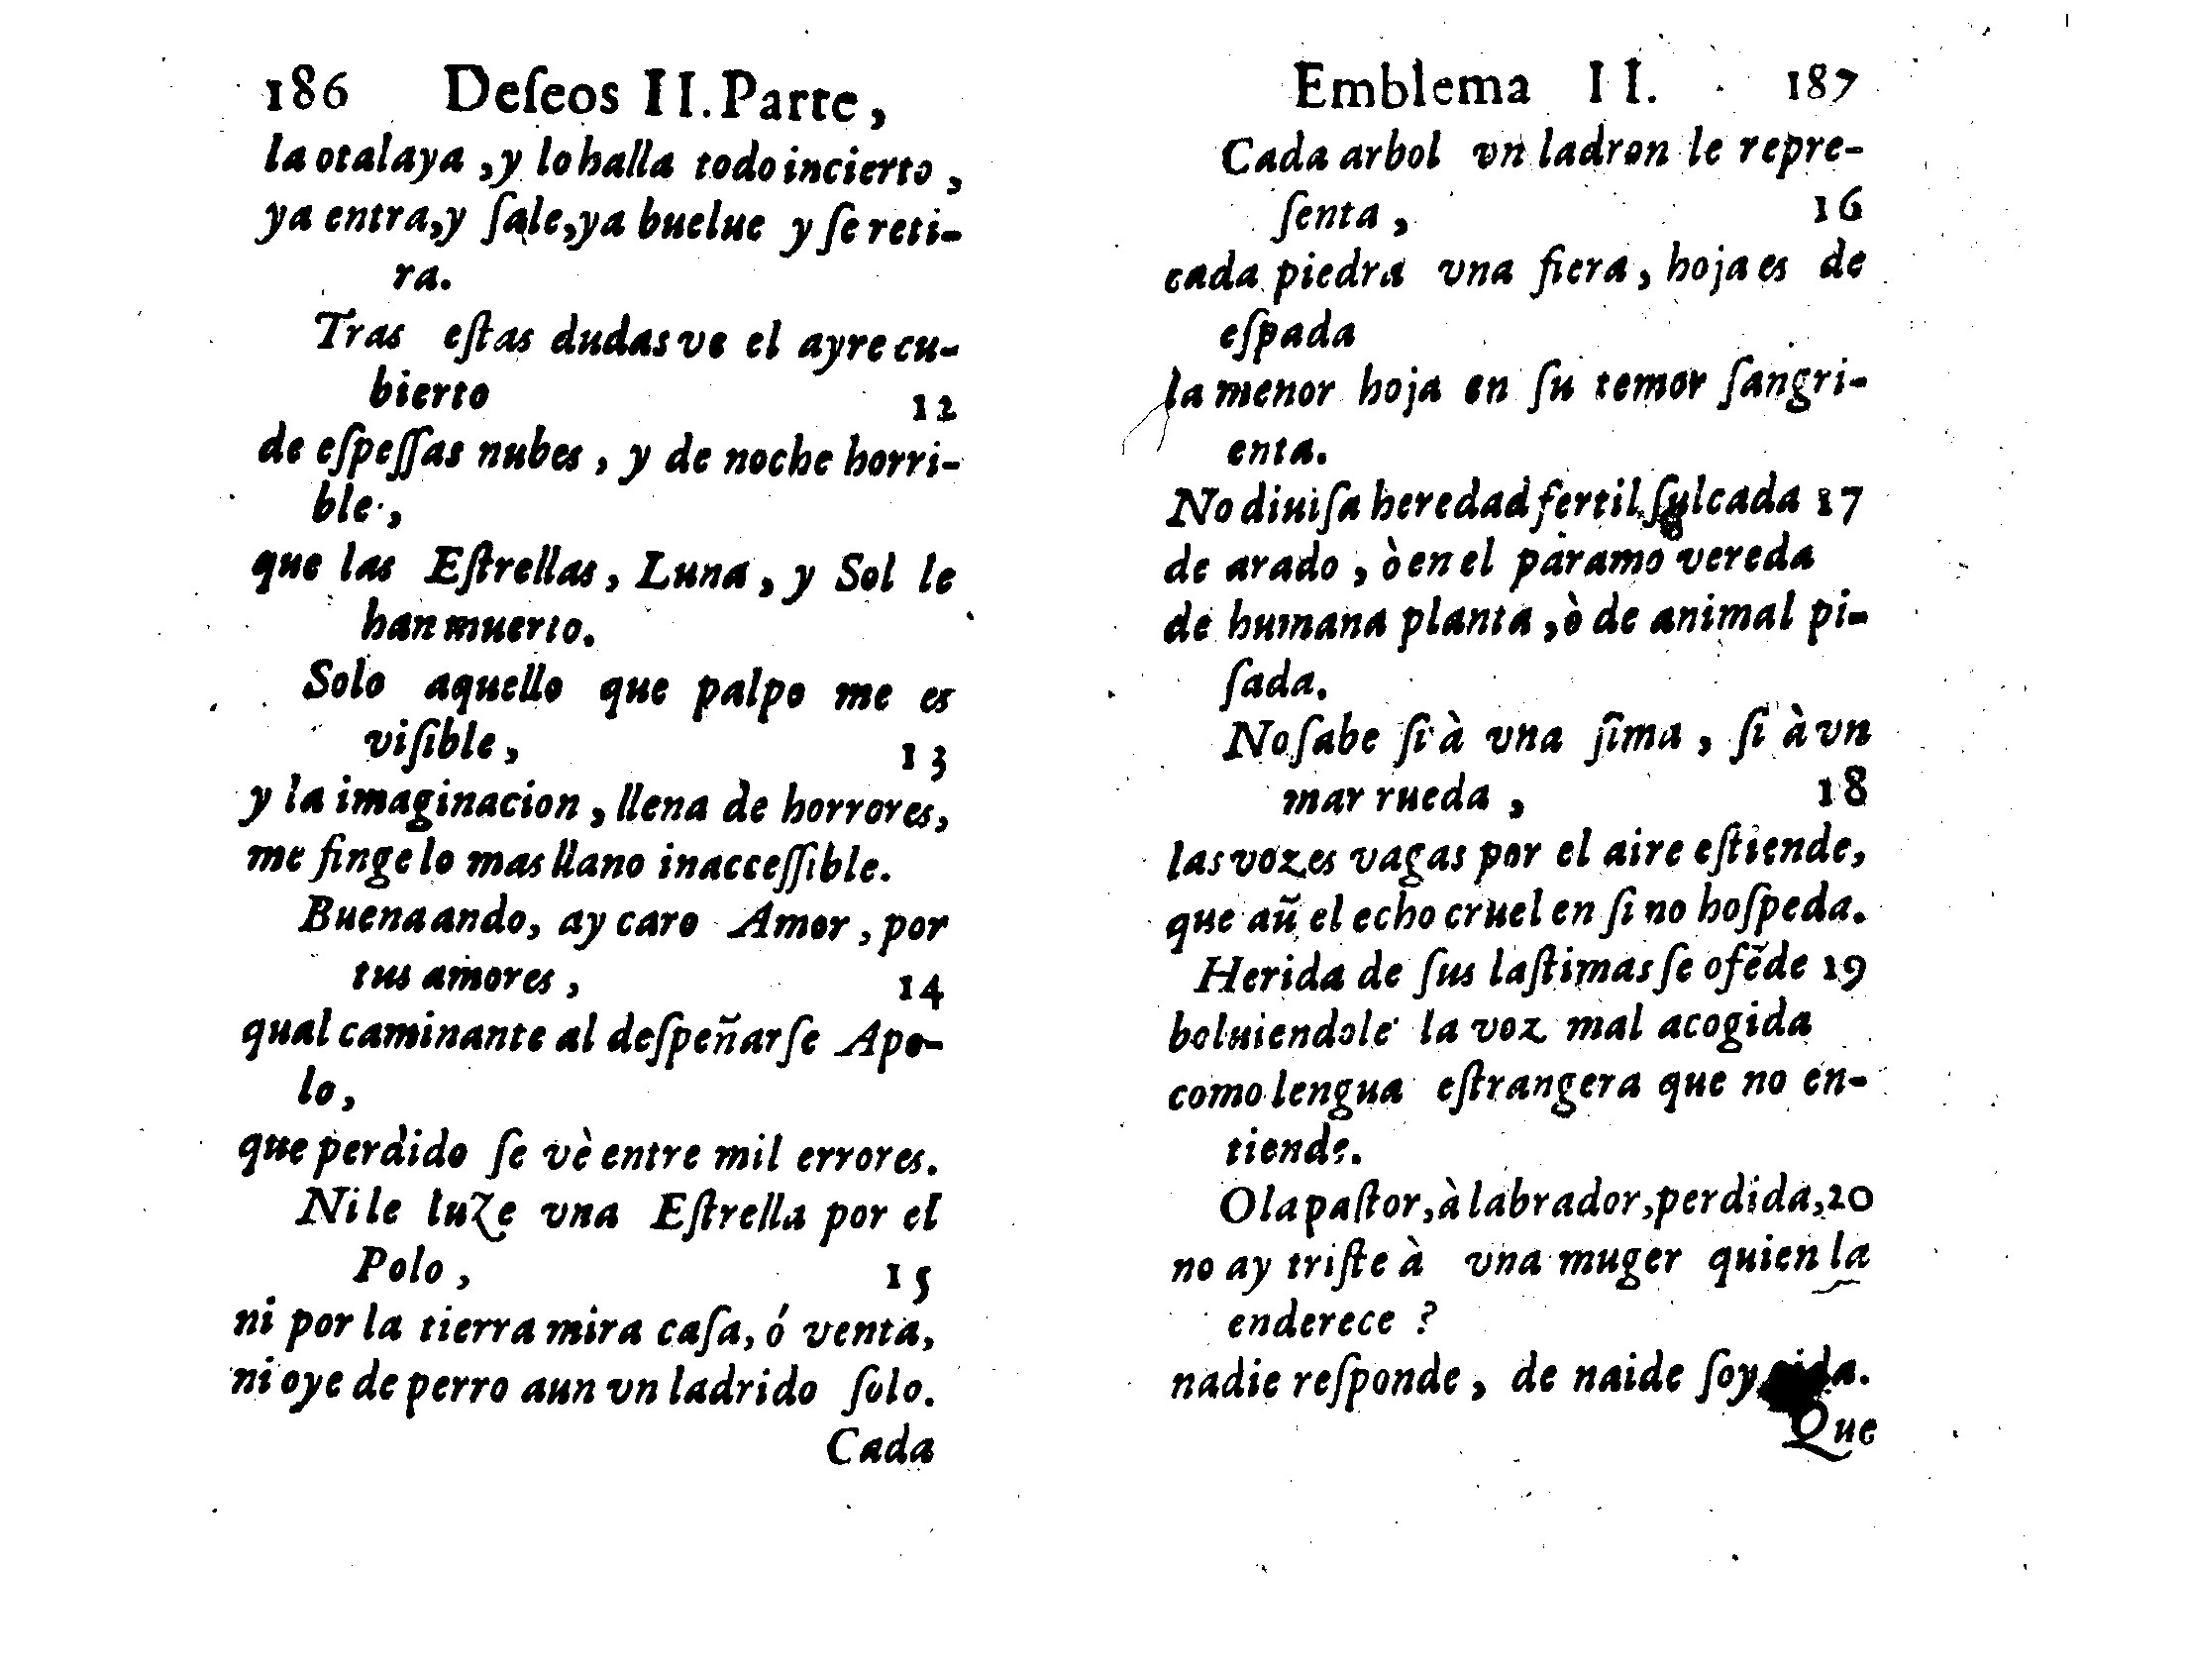 186 Deſeos II. Parte,
la otalaya, y lo halla todo incierto,
ya entra, y ſale, ya buelue y ſe reti-
ra.
Tras eſtas dudas ve el ayre cu-
bierto 12
de eſpeſſas nubes, y de noche horri-
ble,
que las Eſtrellas, Luna, y Sol le
han muerto.
Solo aquello que palpo me es
viſible, 13
y la imaginacion, llena de horrores,
me finge lo mas llano inacceſſible.
Buena ando, ay caro Amor, por
tus amores, 14
qual caminante al deſpeñarſe Apo-
lo,
que perdido ſe vè entre mil errores.
Ni le luze vna Eſtrella por el
Polo, 15
ni por la tierra mira caſa, ó venta,
ni oye de perro aun vn ladrido ſolo.
Cada
Emblema II. 187
Cada arbol vn ladron le repre-
ſenta, 16
cada piedra vna fiera, hoja es de
eſpada
la menor hoja en ſu temor ſangri-
enta.
No diuiſa heredad fertil ſulcada 17
de arado, ò en el páramo vereda
de humana planta, ò de animal pi-
ſada.
No ſabe ſi à vna ſima, ſi à vn
mar rueda, 18
las vozes vagas por el aire eſtiende,
que aũ el echo cruel en ſi no hoſpeda.
Herida de ſus laſtimas ſe ofẽde 19
boluiendole la voz mal acogida
como lengua eſtrangera que no en-
tiende.
Ola paſtor, à labrador, perdida, 20
no ay triſte à vna muger quien la
enderece?
nadie reſponde, de naide ſoy
Que